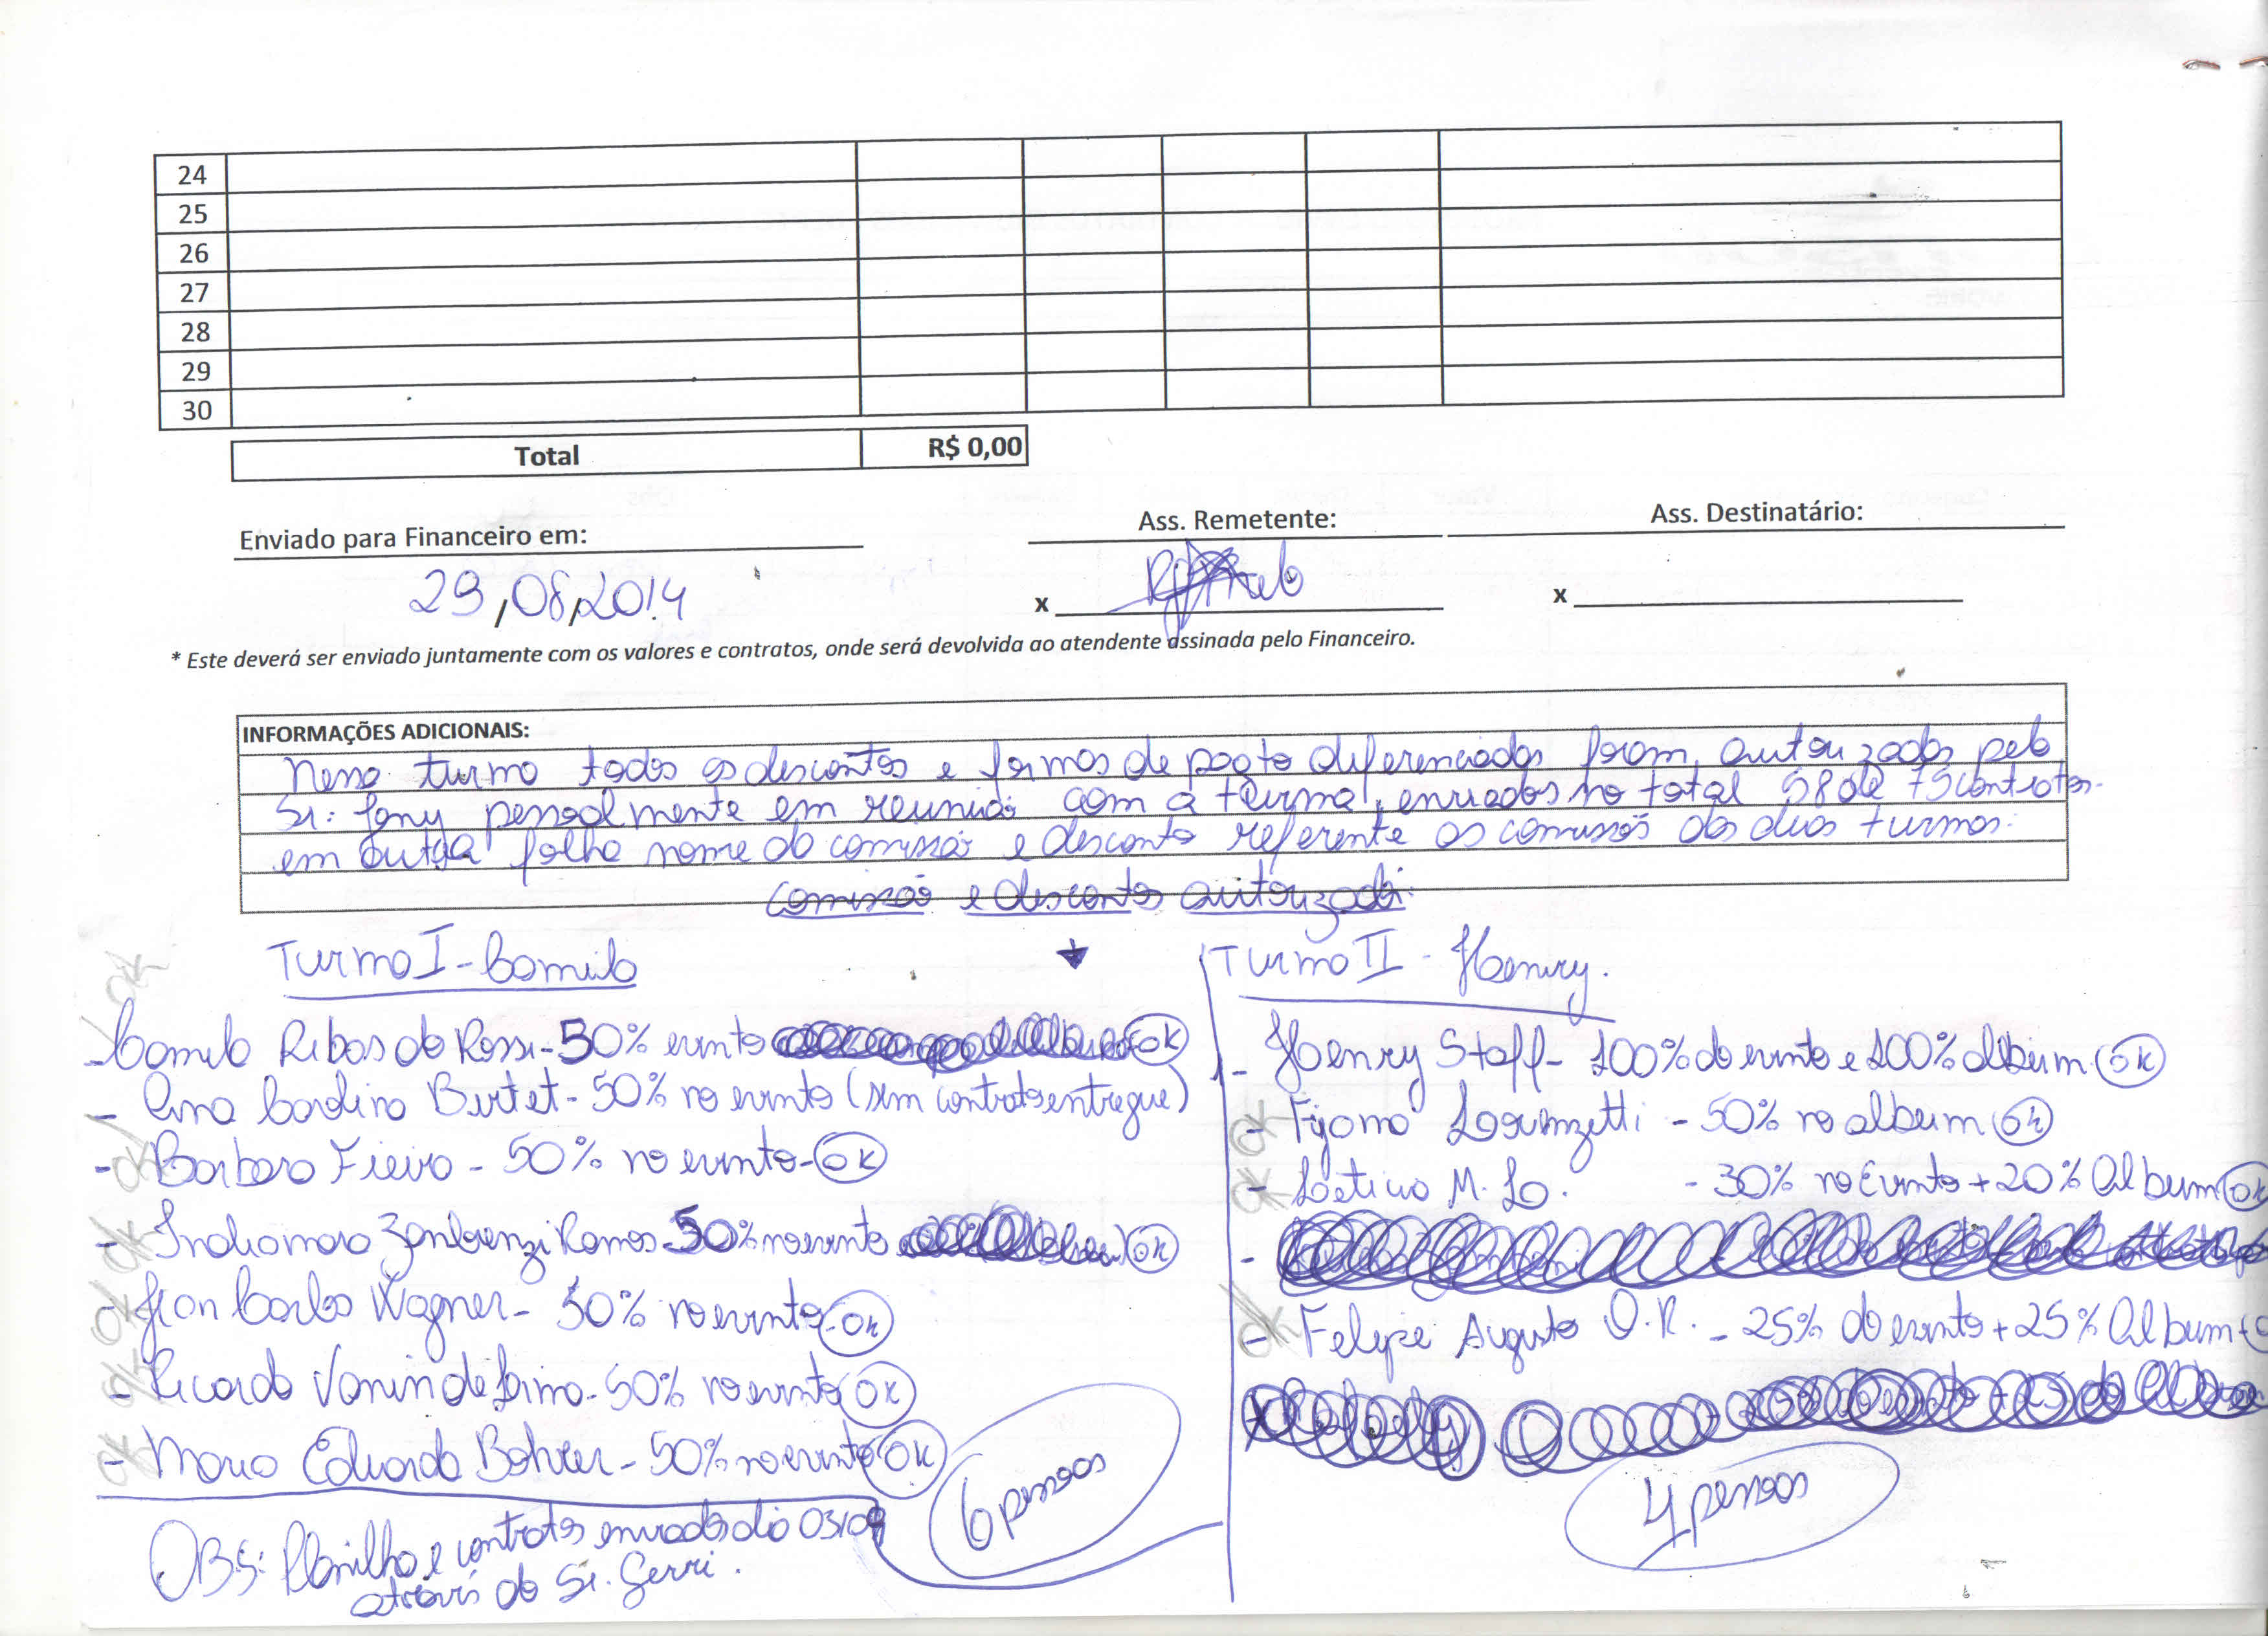 24
25
26
27
28
29
30
Total R$ 0,00
Enviado para Financeiro em: Ass. Remetente: Ass. Destinatário:
29,08,2014 x x
* Este deverá ser enviado juntamente com os valores e contratos, onde será devolvida ao atendente assinada pelo Financeiro.
INFORMAÇÕES ADICIONAIS:
Nessa turma todos os descontos e formas de pagto diferenciados foram autorizados pelo
Sr: pessoalmente em reunião com a turma, enviados no total 58 de 75 contratos.
em outra folha nome da comissão e desconto referente as comissões das duas turmas.
comissão e descontos autorizado.
Turma I - Camila
- Camila Ribas da Rossi - 50% evento ok
- Ana Carolina Bertet - 50% no evento (sem contrato entregue)
- Barbara Vieira - 50% no evento - ok
- Indiamara Ramos - 50% no evento ok
- Jean Carlos Wagner - 50% no evento ok
- Ricardo Vanin de Lima - 50% no evento ok
- Maria Eduarda Bohrer - 50% no evento ok
6 pessoas
OBS: Planilha e contratos enviados dia 03/09
através do Sr. Gerri.
Turma II - Henry.
- Henry Staff - 100% do evento e 100% album ok
- Lorenzetti - 50% no album ok
- Leticia M. Lo. - 30% no Evento + 20% Album ok
- Felipe Augusto O.R. - 25% do evento + 25% Album
4 pessoas